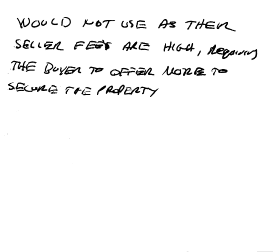 WOULD NOT USE AS THEIR
SELLER FEES ARE HIGH, REQUIRING
THE BUYER TO OFFER MORE TO
SECURE THE PROPERTY